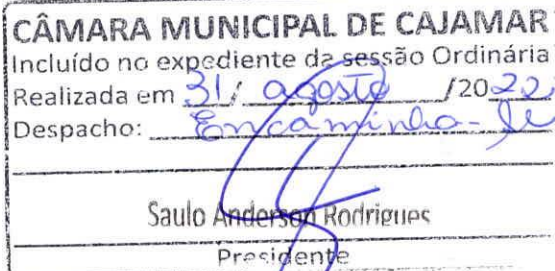 CÂMARA MUNICIPAL DE CAJAMAR
Incluído no expediente da sessão Ordinária
Realizada em 31/ agosto /2022
Despacho: Encaminha-se
Saulo Anderson Rodrigues
Presidente